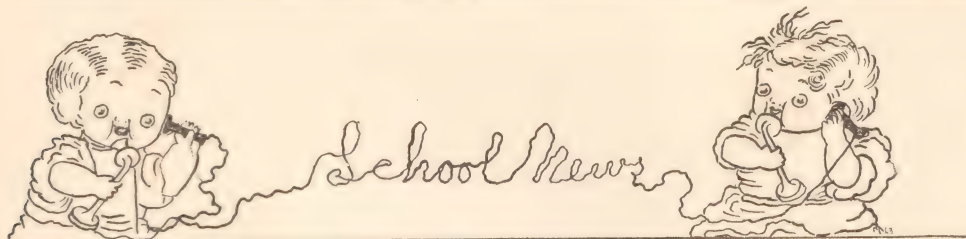 School News